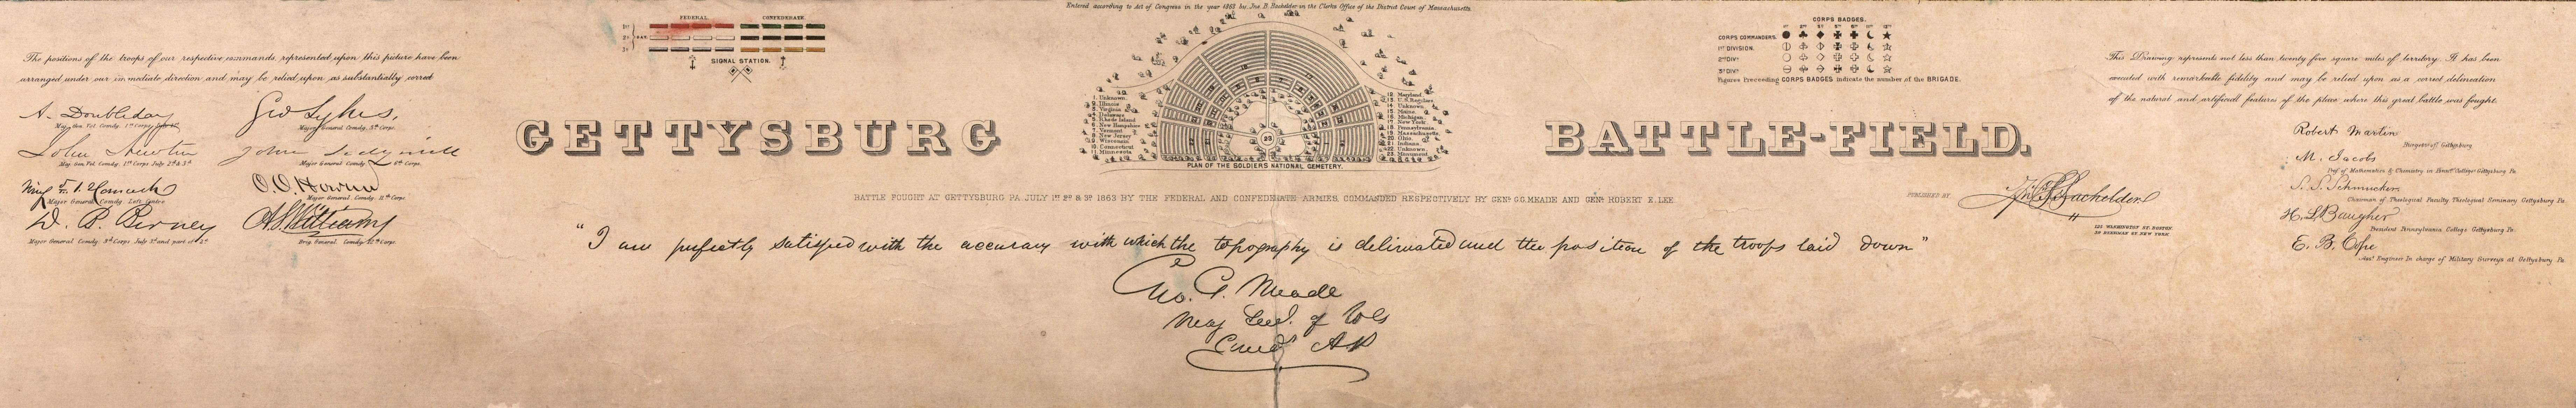 Entered according to Act of Congress in the year 1863 by Jno. B. Bachelder in the Clerks Office of the District Court of Massachusetts.
The positions of the troops of our respective commands, represented upon this picture have been
arranged under our immediate direction and may be relied upon as substantially correct
A. Doubleday
Maj. Gen. Vol. Comdg. 1st Corps
Geo Sykes,
Major General Comdg. 5th Corps.
John Newton
Maj. Gen. Vol. Comdg. 1st Corps July 2d & 3d
John Sedgwick
Major General Comdg. 6th Corps.
Winf S. Hancock
Major General Comdg. Left Centre
O. O. Howard
Major General. Comdg. 11th Corps.
D. B. Birney
Major General Comdg. 3d Corps July 3d and part of 2d
A. S. Williams
Brig. General. Comdg. 12th Corps.
FEDERAL CONFEDERATE.
1ST
2D DAY.
3D
SIGNAL STATION.
1. Unknown.
2. Illinois
3. Virginia
4. Delaware
5. Rhode Island
6. New Hampshire
7. Vermont
8. New Jersey
9. Wisconsin
10. Connecticut
11. Minnesota
12. Maryland
13. U.S. Regulars
14. Unknown
15. Maine
16. Michigan
17. New York
18. Pennsylvania
19. Massachusetts
20. Ohio.
21. Indiana
22. Unknown
23. Monument
23
PLAN OF THE SOLDIERS NATIONAL CEMETERY.
CORPS BADGES.
CORPS COMMANDERS.
1ST DIVISION.
2ND DIVN
3D DIVN
Figures Preceding CORPS BADGES indicate the number of the BRIGADE.
GETTYSBURG BATTLE-FIELD.
BATTLE FOUGHT AT GETTYSBURG PA. JULY 1ST 2D & 3D 1863 BY THE FEDERAL AND CONFEDERATE ARMIES, COMMANDED RESPECTIVELY BY GENL G.G. MEADE AND GENL ROBERT E. LEE
PUBLISHED BY Jno. B. Bachelder
123 WASHINGTON ST. BOSTON
59 BEEKMAN ST. NEW YORK
"I am perfectly satisfied with the accuracy with which the topography is delineated and the position of the troops laid down"
Geo. G. Meade
Maj Genl. of Vols
Comdg A.P.
This Drawing represents not less than twenty five square miles of territory. It has been
executed with remarkable fidelity and may be relied upon as a correct delineation
of the natural and artificial features of the place where this great battle was fought.
Robert Martin
Burgess of Gettysburg
M. Jacobs
Prof. of Mathematics & Chemistry in Penna College Gettysburg Pa.
S. S. Schmucker
Chairman of Theological Faculty Theological Seminary Gettysburg Pa.
H. L. Baugher
President Pennsylvania College Gettysburg Pa.
E. B. Cope
Asst Engineer in charge of Military Surveys at Gettysburg Pa.